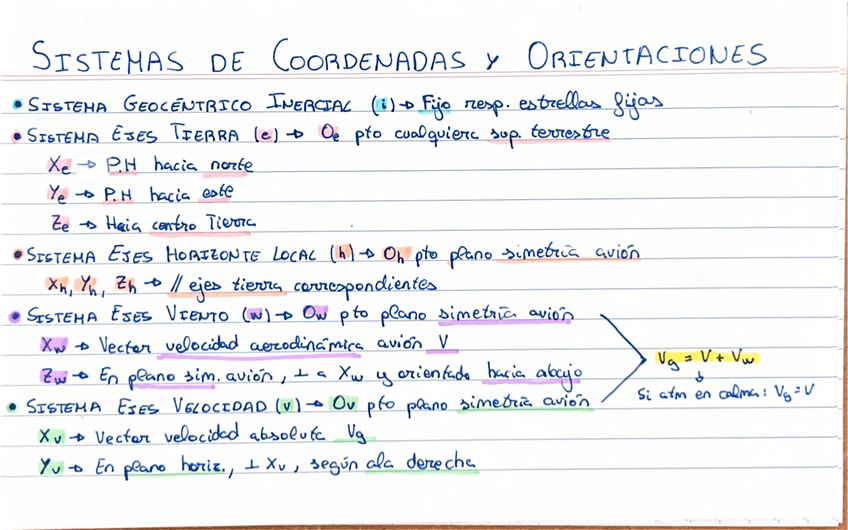 SISTEMAS DE COORDENADAS Y ORIENTACIONES
• SISTEMA GEOCÉNTRICO INERCIAL (i) → Fijo resp. estrellas fijas
• SISTEMA EJES TIERRA (e) → Oe pto cualquiera sup. terrestre
Xe → P.H hacia norte
Ye → P.H hacia este
Ze → Hacia centro Tierra
• SISTEMA EJES HORIZONTE LOCAL (h) → Oh pto plano simetría avión
Xh, Yh, Zh → // ejes tierra correspondientes
• SISTEMA EJES VIENTO (w) → Ow pto plano simetría avión
Xw → Vector velocidad aerodinámica avión V
Zw → En plano sim. avión, ⊥ a Xw y orientado hacia abajo
Vg = V + Vw
↓
Si atm en calma: Vg = V
• SISTEMA EJES VELOCIDAD (v) → Ov pto plano simetría avión
Xv → Vector velocidad absoluta Vg
Yv → En plano horiz., ⊥ Xv, según ala derecha